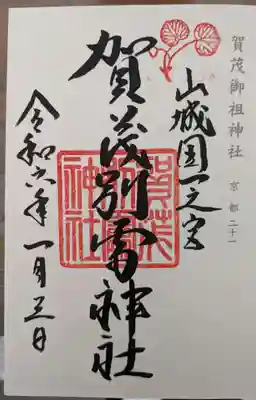 賀茂御祖神社 京都二十一
山城国一之宮
賀茂別雷神社
賀茂別雷神社
令和六年一月三日